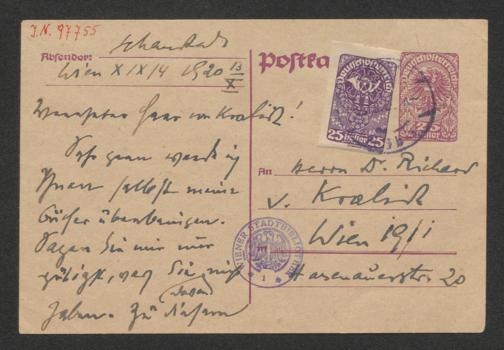 I.N. 97755
Absender: Schaukal
Wien XIX/4 1920 13/X
Postka
Deutschösterreich
25 Heller 25
Deutschösterreich
Verehrter Herr von Kralik!
Sehr gern werde ich
Ihnen selbst meine
Bücher überbringen.
Sagen Sie mir nur
gütigst, was Sie nicht
haben. Zu diesem
An Herrn Dr. Richard
v. Kralik
Wien 19/1
Hasenauerstr 20
WIENER STADTBIBLIOTHEK